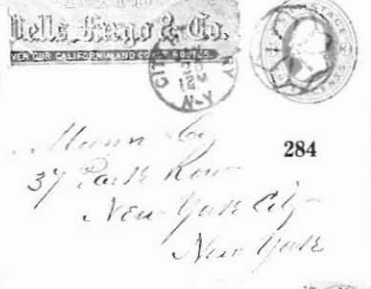 Wells, Fargo & Co.
OVER OUR CALIFORNIA AND COAST ROUTES.
CITY
N.Y.
POSTAGE
Munn & Co
37 Park Row
New York City
New York
284